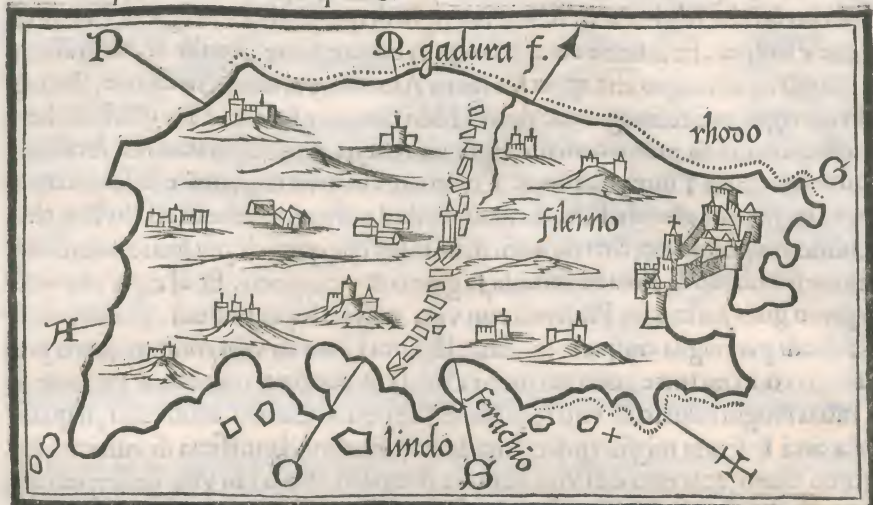 P
M
gadura f.
rhodo
G
filerno
lindo
ferachio
O
S